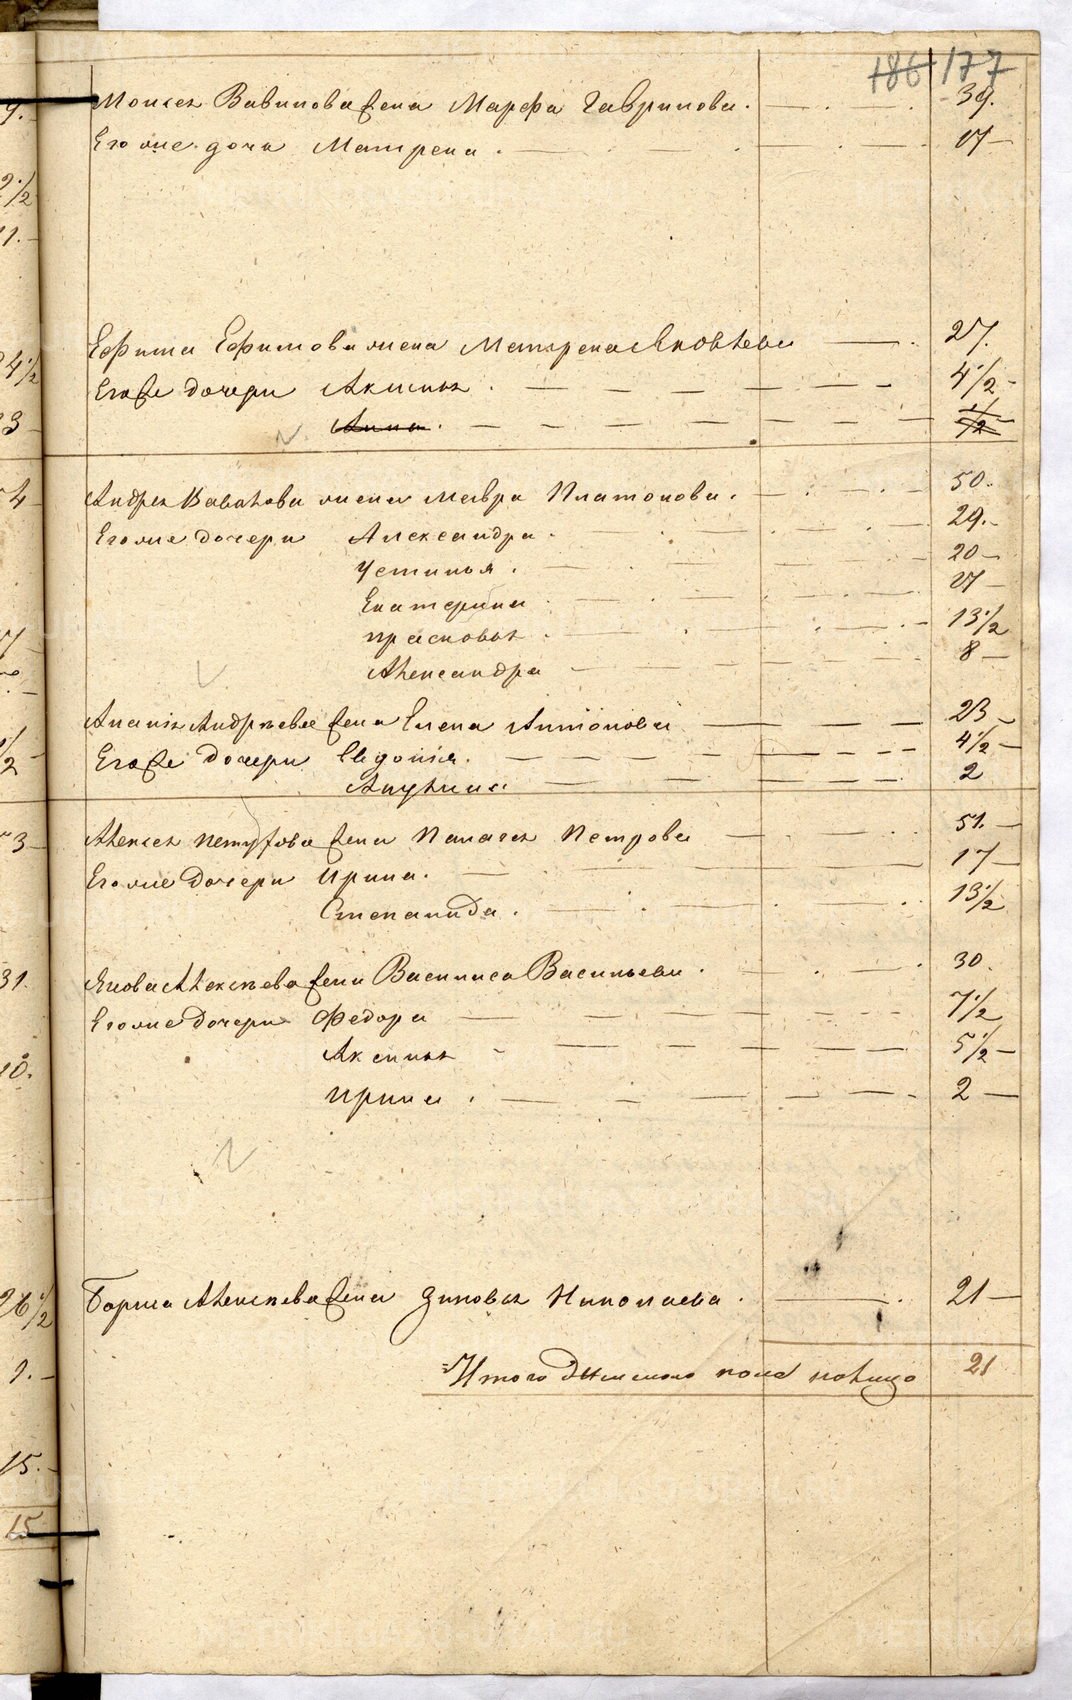 186 177
Моисея Вавилова жена Марфа Гаврилова. 39.
Его же дочь Матрена. 17
Ефима Ефимова жена Матрена Яковлева 27.
Его же дочери Аксинья. 4 1/2
Анна. 1/2
Андрея Вавилова жена Мавра Платонова. 50.
Его же дочери Александра. 29.
Устинья. 20
Екатерина 17
Прасковья 13 1/2
Александра 8
Анания Андреева жена Елена Антонова 23
Его же дочери Евдокия. 4 1/2
Акулина 2
Алексея жена Палагея Петрова 51.
Его же дочери Ирина. 17
Степанида. 13 1/2
Якова Алексеева жена Василиса Васильева. 30.
Его же дочери Федора 7 1/2
Аксинья 5 1/2
Ирина. 2
Бориса Алексеева жена Зиновья Николаева. 21
Итого женского пола налицо 21